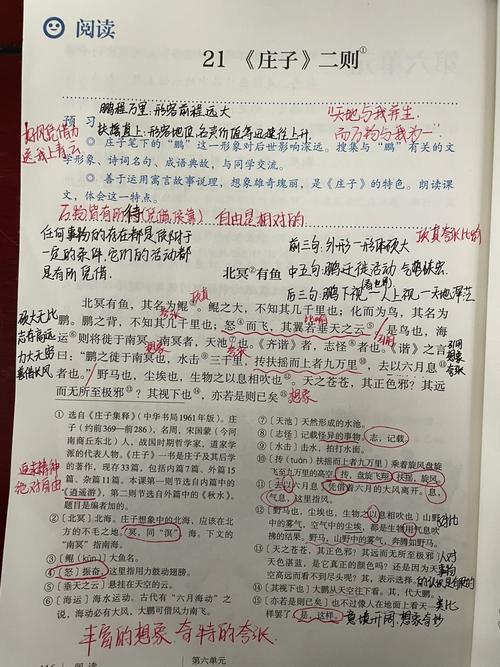 阅读
21 《庄子》二则①
鹏程万里：形容前程远大
"天地与我并生
预习
扶摇直上：形容地位、名声价值等迅速往上升
而万物与我为一
好风凭借力
送我上青云
◎ 庄子笔下的"鹏"这一形象对后世影响深远。搜集与"鹏"有关的文
学形象、诗词名句、成语典故，与同学交流。
◎ 善于运用寓言故事说理，想象雄奇瑰丽，是《庄子》的特色。朗读课
文，体会这一特点。
万物皆有所待（凭借依靠） 自由是相对的
任何事物的存在都是依附于
一定的条件，它们的活动都
是有所凭借
前三句：外形—形体硕大
北冥②有鱼
中五句：鹏迁徙活动
后三句：鹏下视—人上视—天地
北冥有鱼，其名为鲲③。鲲之大，不知其几千里也；化而为鸟，其名为
鹏。鹏之背，不知其几千里也；怒④而飞，其翼若垂天之云⑤。是鸟也，海
运⑥则将徙于南冥。南冥者，天池⑦也。《齐谐》者，志怪⑧者也。《谐》之言
曰："鹏之徙于南冥也，水击⑨三千里，抟扶摇而上者九万里⑩，去以六月息
者也⑪。"野马也，尘埃也，生物之以息相吹也⑫。天之苍苍，其正色邪？其远
而无所至极邪⑬？其视下也⑭，亦若是则已矣⑮。
硕大无比
志存高远
力大无穷
善借长风
夸张
想象
① 选自《庄子集释》（中华书局1961年版）。庄子
（约前369—前286），名周，宋国蒙（今河
南商丘东北）人，战国时期哲学家，道家学
派的代表人物。《庄子》一书是庄子及其后学
的著作，现存33篇，包括内篇7篇、外篇15
篇、杂篇11篇。本课第一则节选自内篇中的
《逍遥游》，第二则节选自外篇中的《秋水》。
题目是编者加的。
② 〔北冥〕北海。庄子想象中的北海，应该在北
方的不毛之地。冥，同"溟"，海。下文的
"南冥"指南海。
③ 〔鲲（kūn）〕大鱼名。
④ 〔怒〕振奋，这里指用力鼓动翅膀。
⑤ 〔垂天之云〕悬挂在天空的云。
⑥ 〔海运〕海水运动。古代有"六月海动"之
说，海动必有大风，大鹏可借风力南飞。
追求精神
绝对自由
⑦ 〔天池〕天然形成的水池。
⑧ 〔志怪〕记载怪异的事物。志，记载。
⑨ 〔水击〕击水，拍打水面。
⑩ 〔抟（tuán）扶摇而上者九万里〕乘着旋风盘旋
飞至九万里的高空。抟，盘旋飞翔。扶摇，旋风。
⑪ 〔去以六月息者也〕凭借着六月的大风离开。息，
气息，这里指风。
⑫ 〔野马也，尘埃也，生物之以息相吹也〕山野
中的雾气，空气中的尘埃，都是生物用气息吹
拂的结果。野马，山野中的雾气，奔腾如野马。
⑬ 〔天之苍苍，其正色邪？其远而无所至极邪〕
天色湛蓝，是它真正的颜色吗？还是因为天
空高远而看不到尽头呢？其，表示选择。
⑭ 〔其视下也〕大鹏从天空往下看。其，代大鹏。
⑮ 〔亦若是则已矣〕也不过像人在地面上看天一
样罢了。是，这样。
意境开阔，想象奇妙
丰富的想象 奇特的夸张
阅读
第六单元